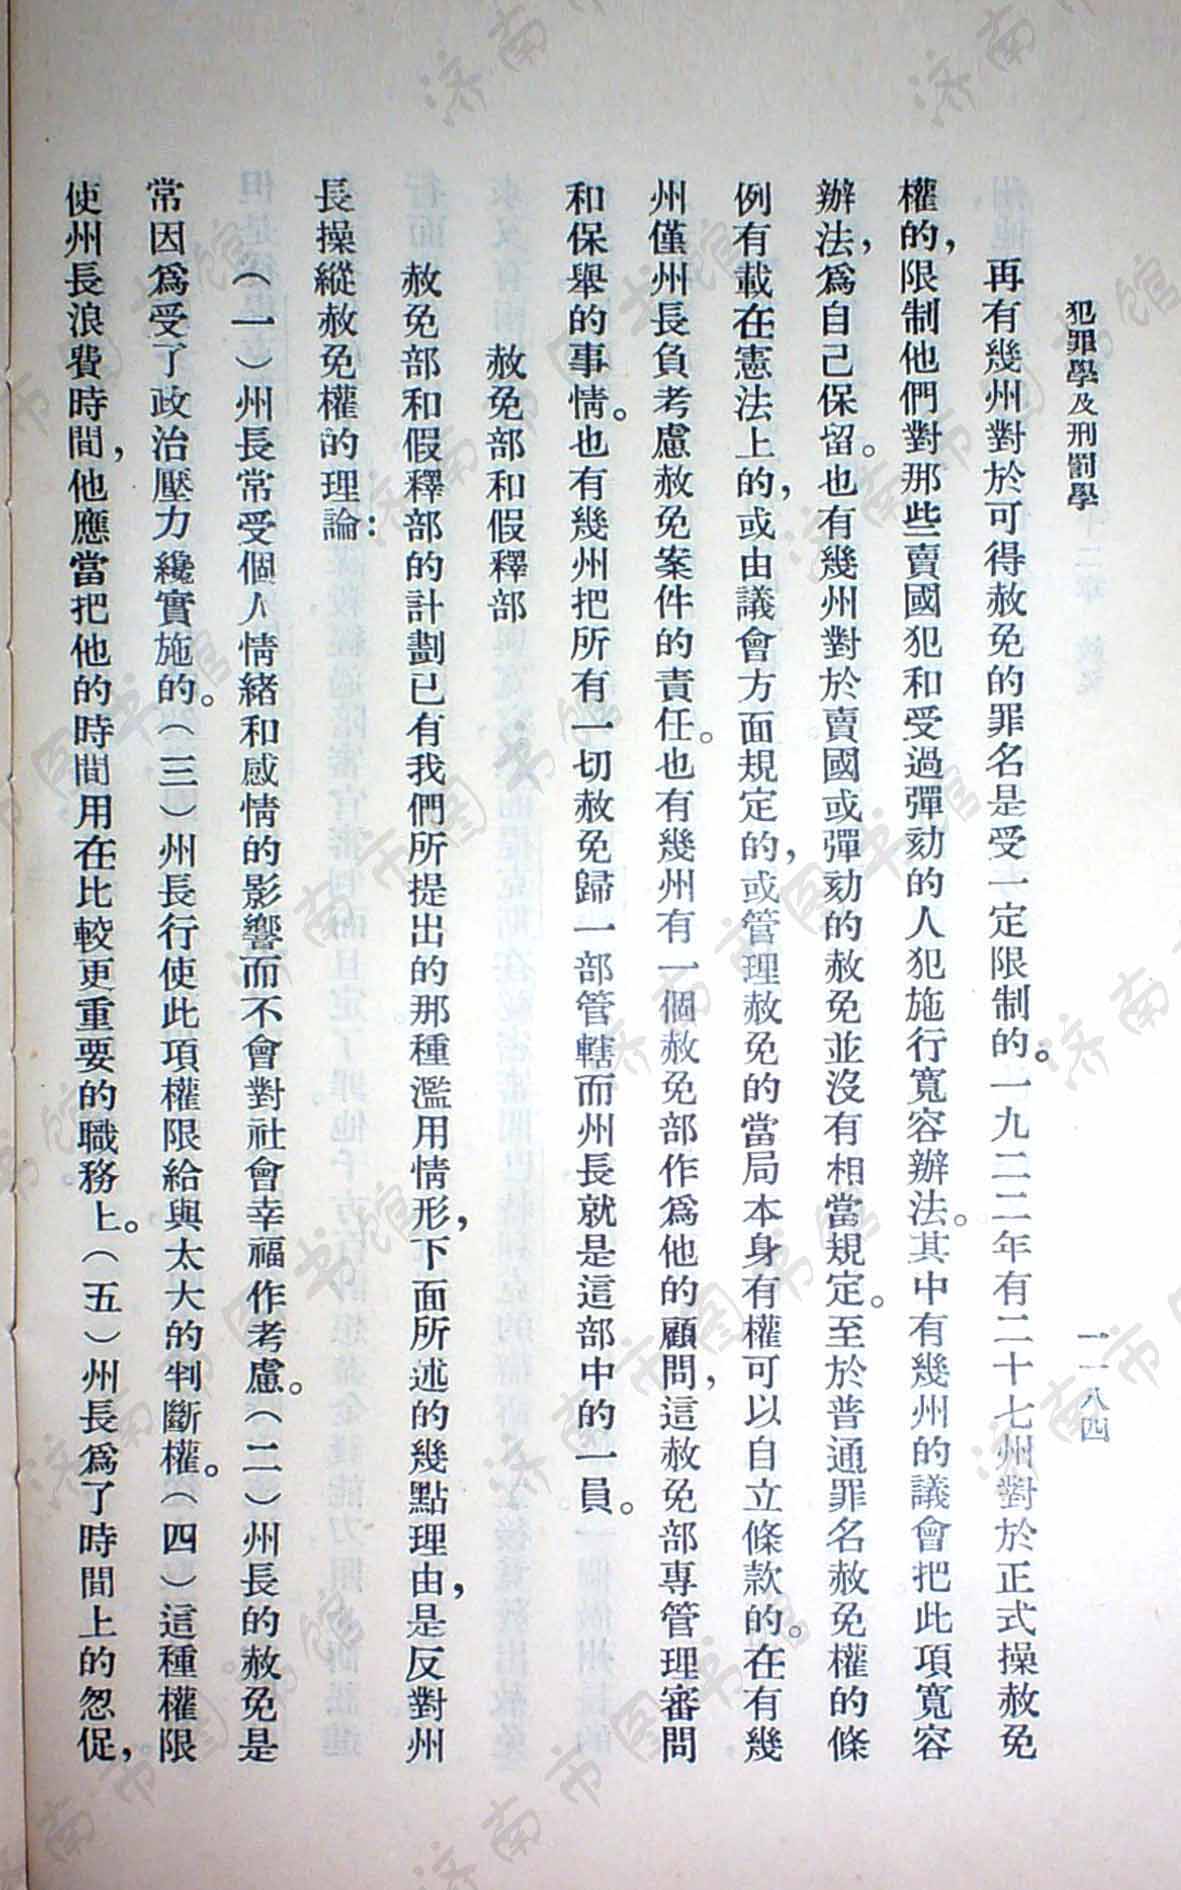 犯罪學及刑罰學
一一八四
再有幾州對於可得赦免的罪名是受一定限制的。一九二二年有二十七州對於正式操赦免
權的，限制他們對那些賣國犯和受過彈劾的人犯施行寬容辦法。其中有幾州的議會把此項寬容
辦法，爲自己保留。也有幾州對於賣國或彈劾的赦免並沒有相當規定。至於普通罪名赦免權的條
例有載在憲法上的，或由議會方面規定的，或管理赦免的當局本身有權可以自立條款的。在有幾
州僅州長負考慮赦免案件的責任。也有幾州有一個赦免部作爲他的顧問，這赦免部專管理審問
和保舉的事情。也有幾州把所有一切赦免歸一部管轄而州長就是這部中的一員。
赦免部和假釋部
赦免部和假釋部的計劃已有我們所提出的那種濫用情形，下面所述的幾點理由，是反對州
長操縱赦免權的理論：
（一）州長常受個人情緒和感情的影響而不會對社會幸福作考慮。（二）州長的赦免是
常因爲受了政治壓力纔實施的。（三）州長行使此項權限給與太大的判斷權。（四）這種權限
使州長浪費時間，他應當把他的時間用在比較更重要的職務上。（五）州長爲了時間上的忽促，
济南市图书馆